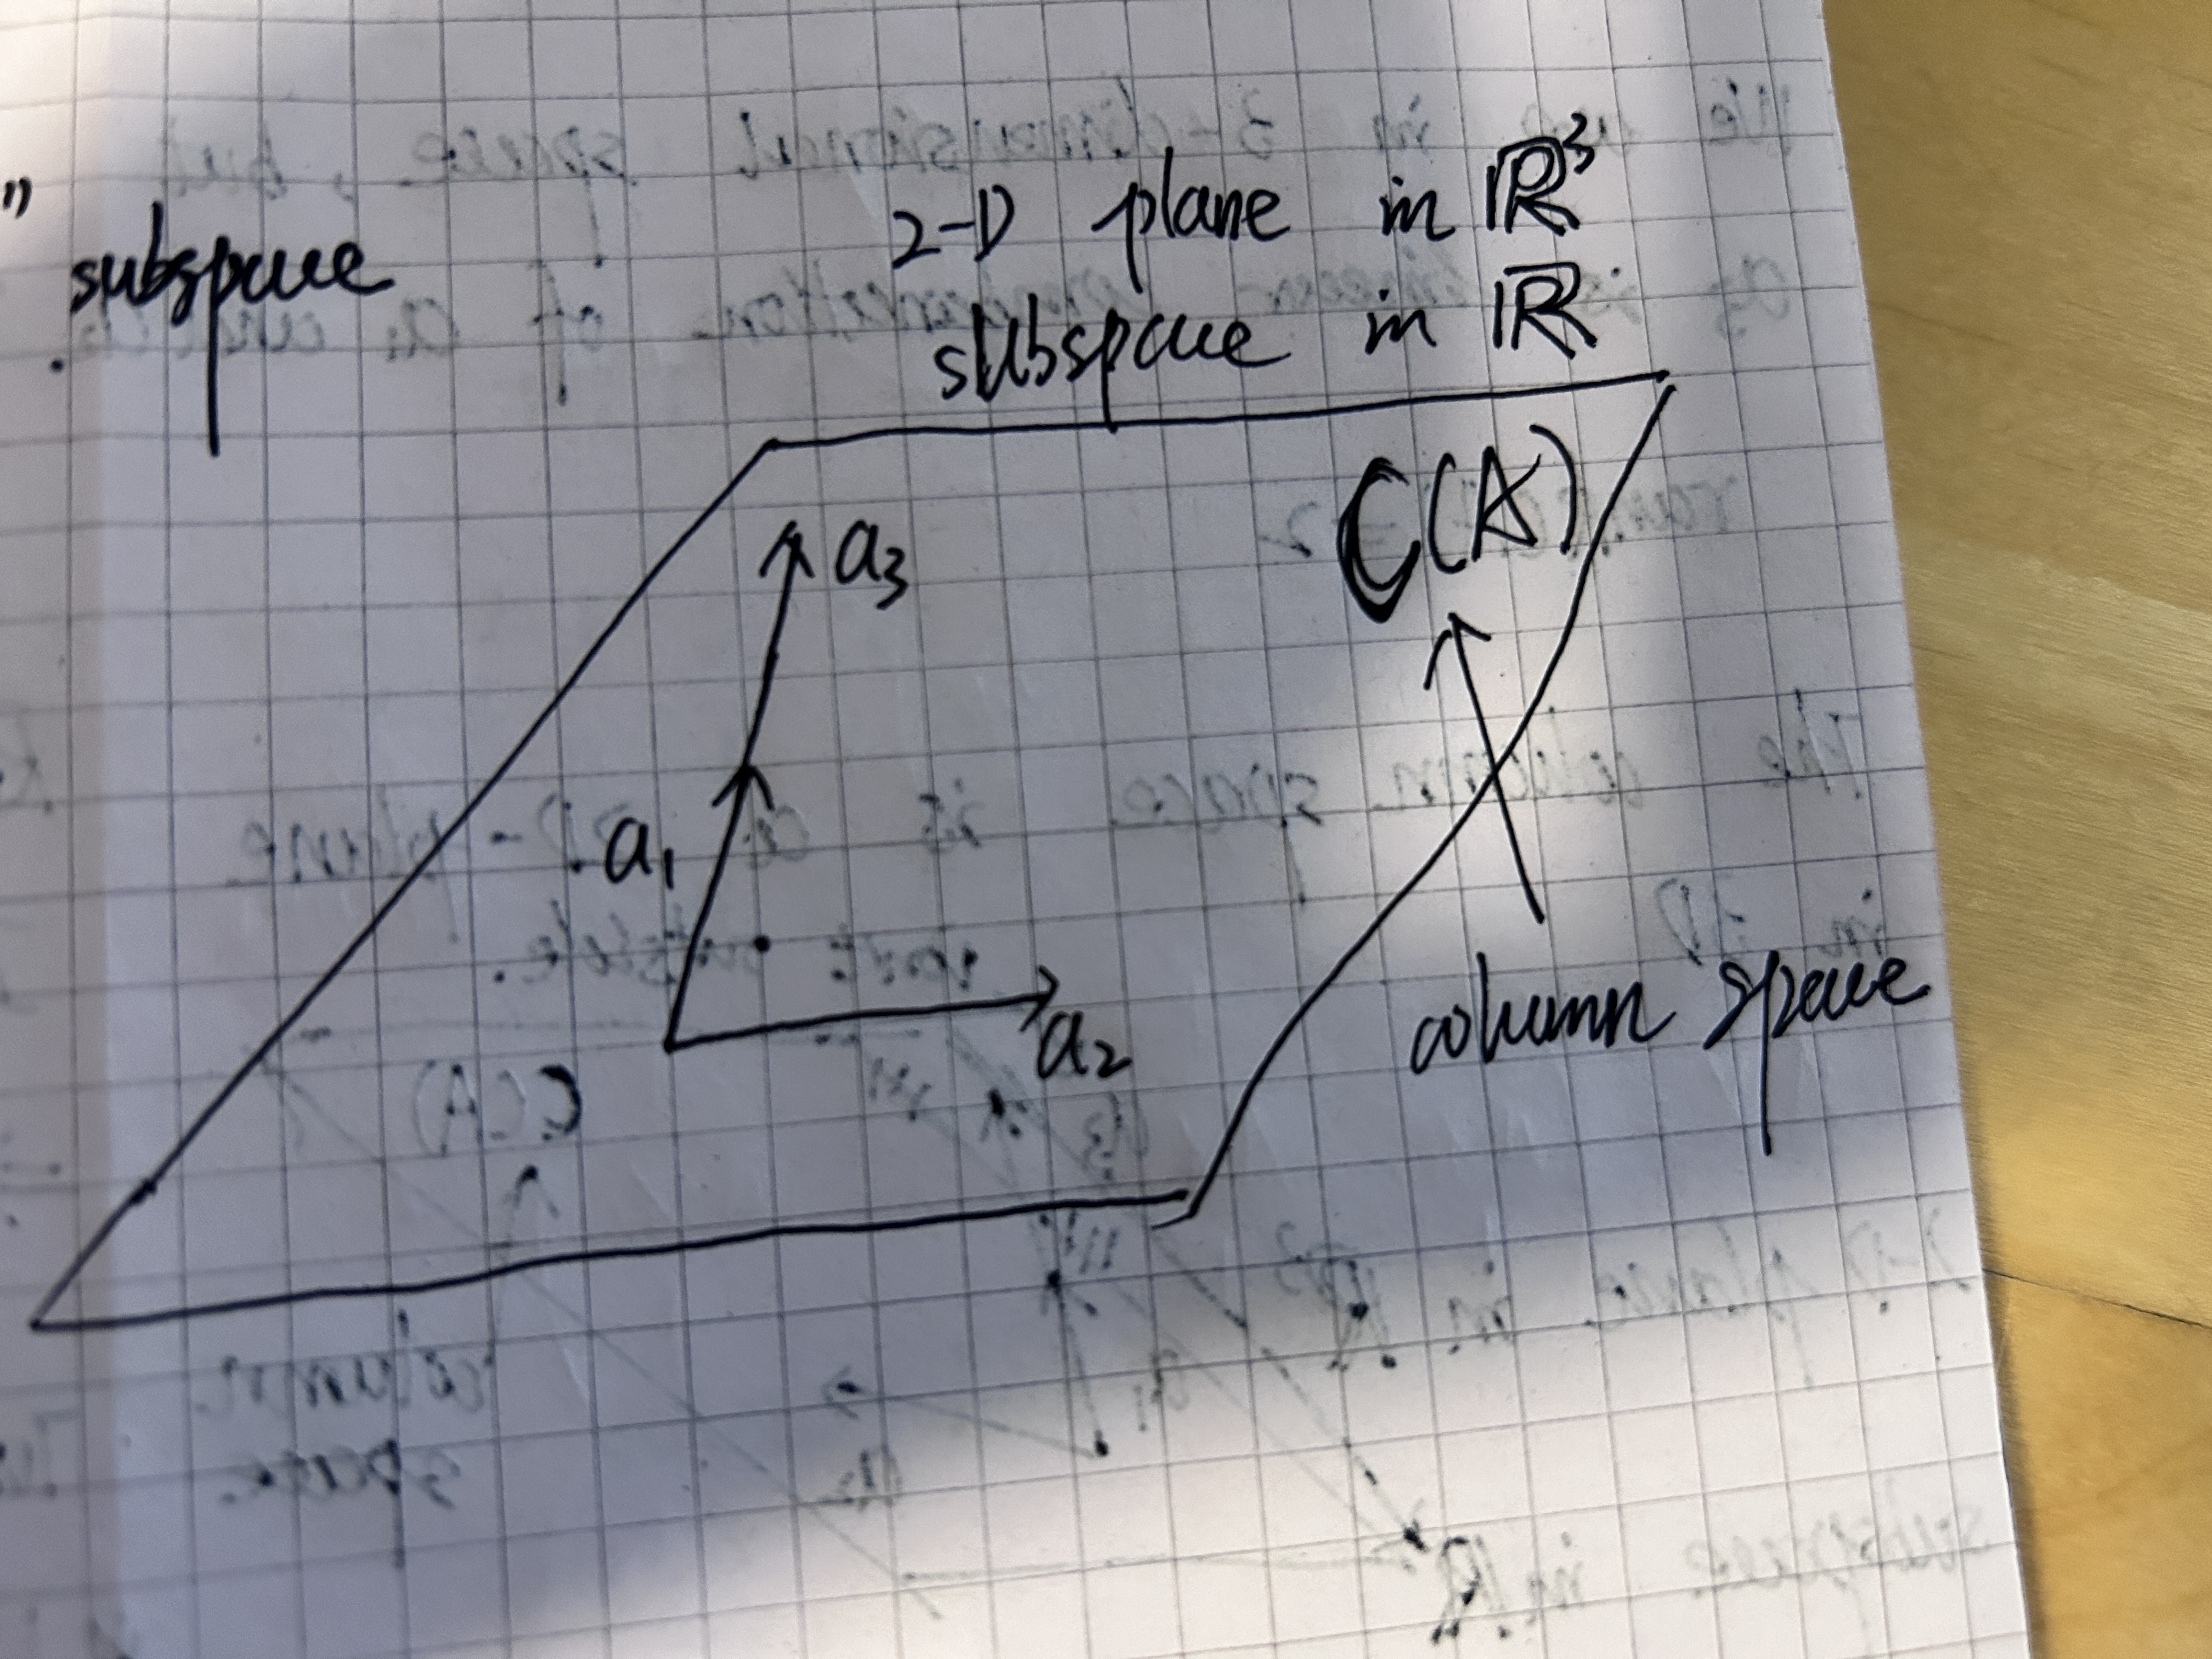 "
subspace
2-D plane in ℝ³
subspace in ℝ
C(A)
a₃
a₁
a₂
column space